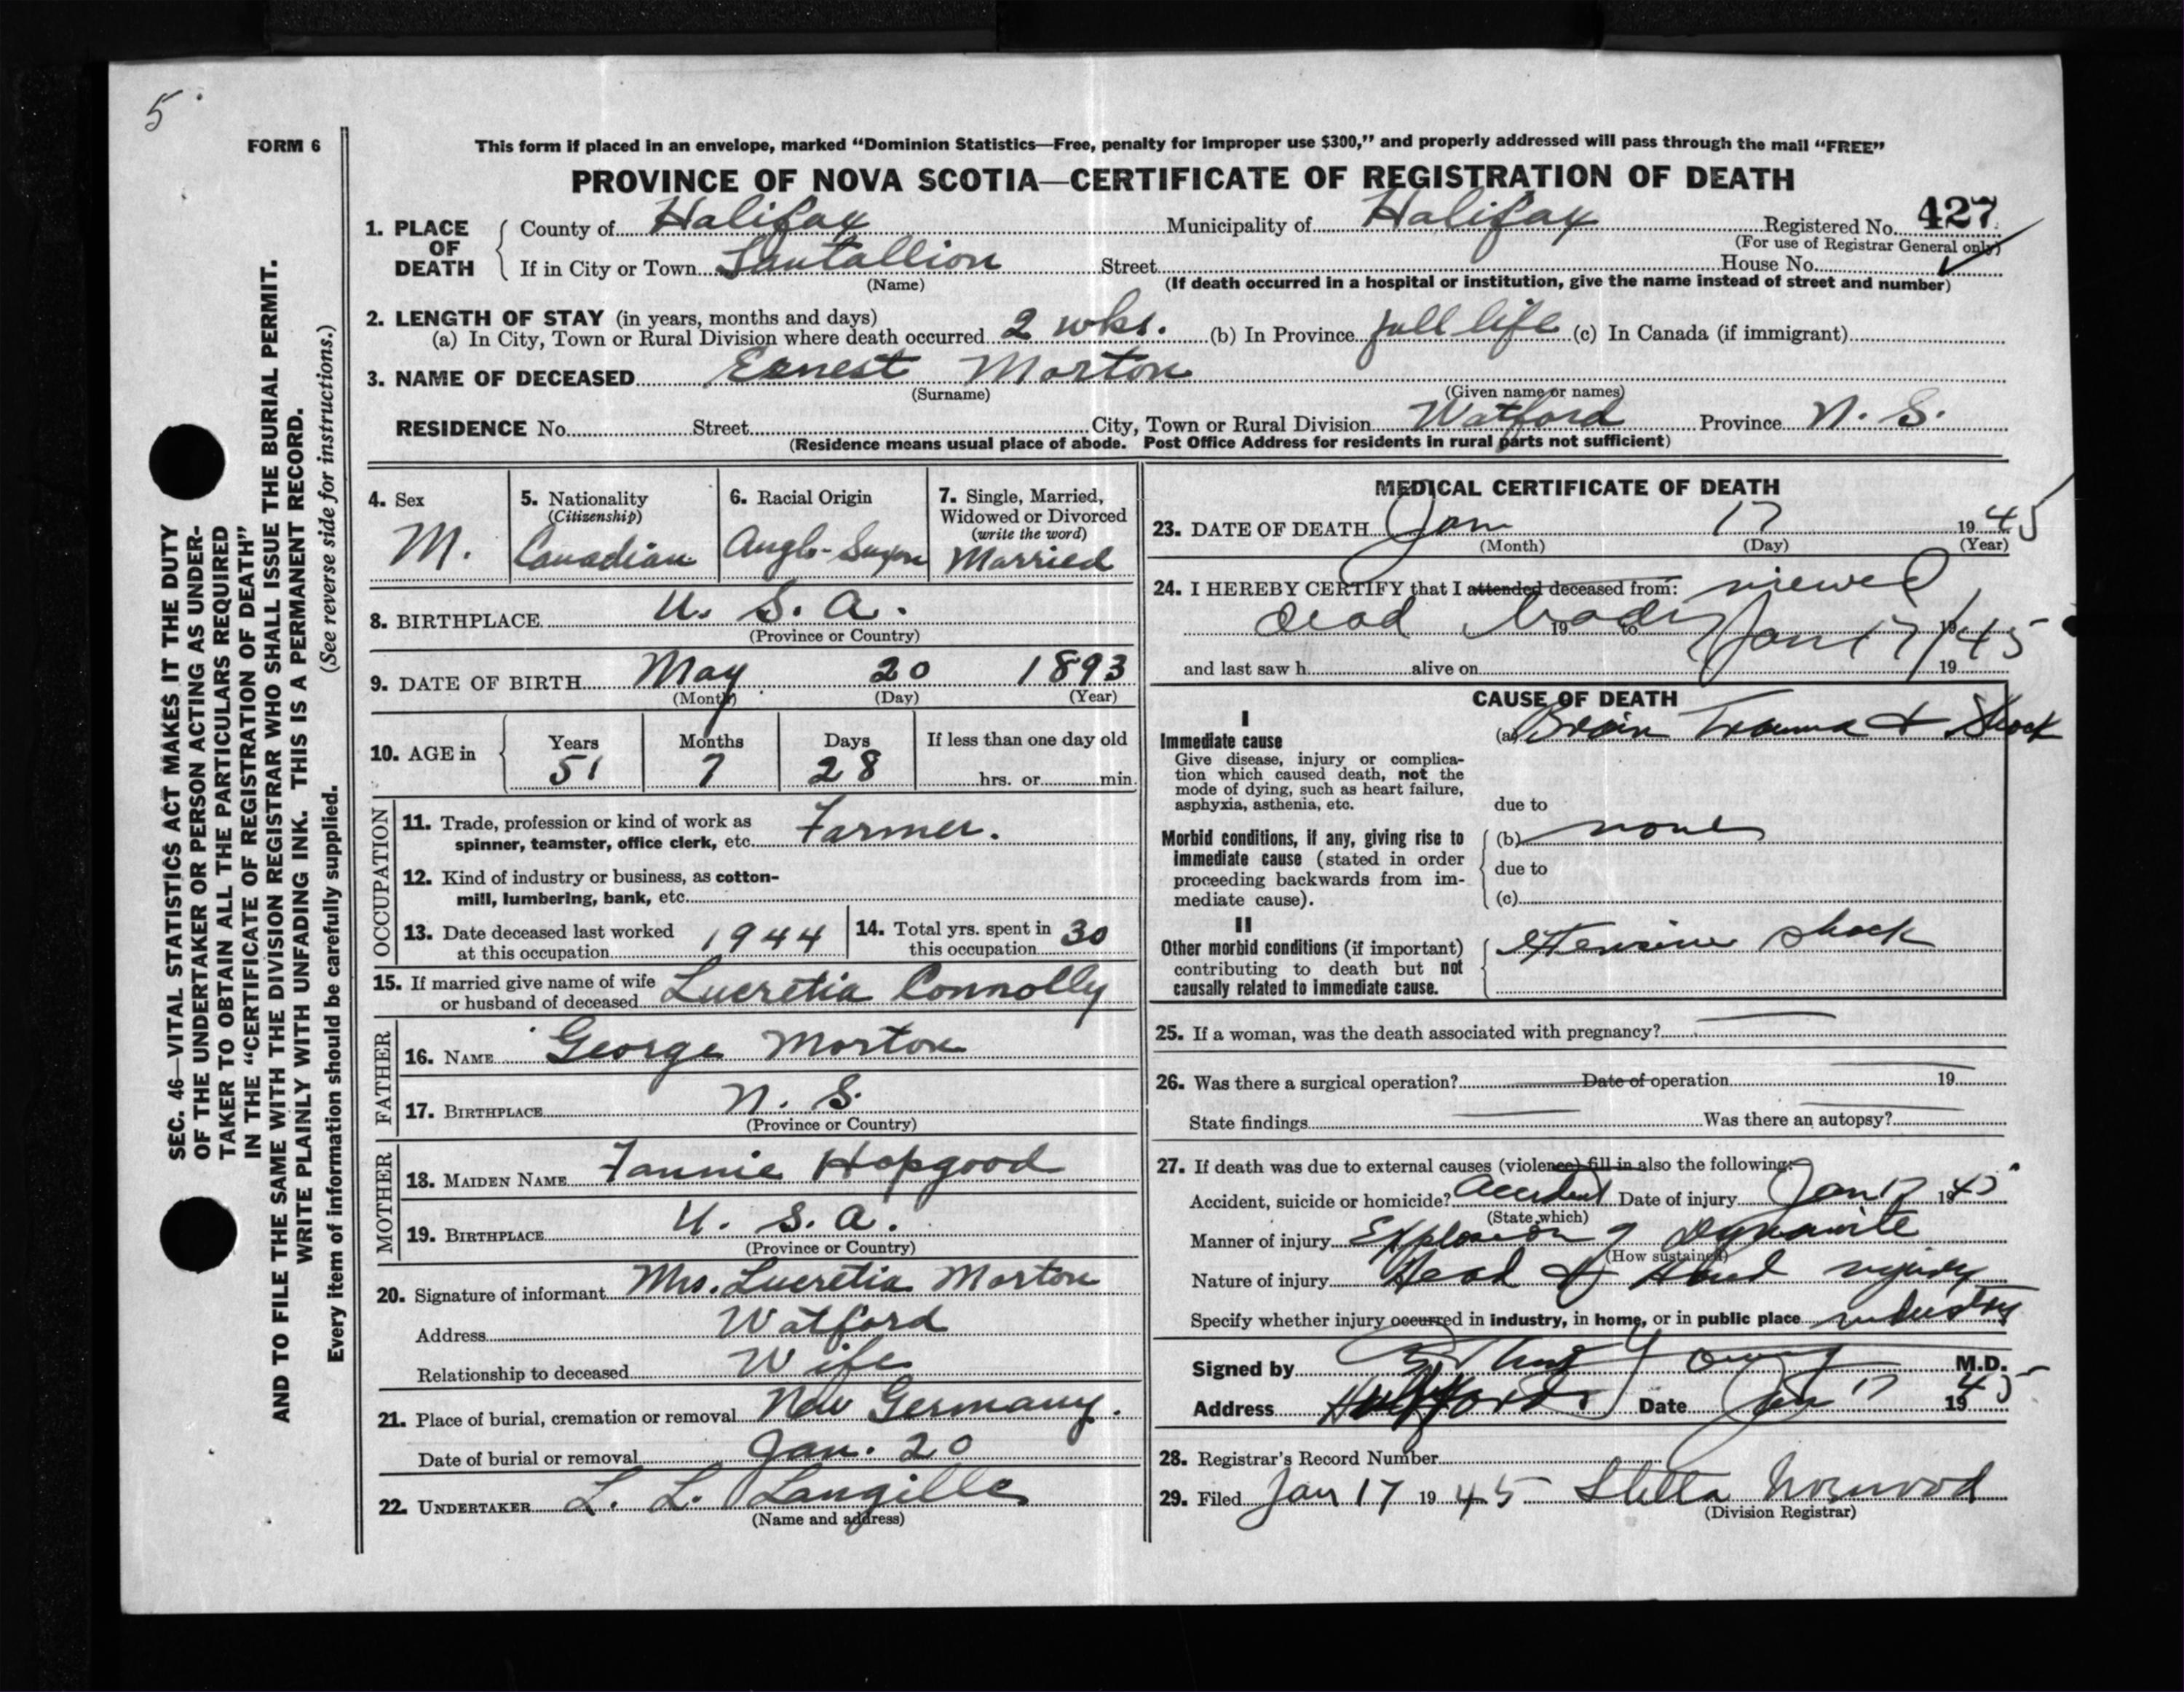 5
FORM 6
This form if placed in an envelope, marked “Dominion Statistics—Free, penalty for improper use $300,” and properly addressed will pass through the mail “FREE”
PROVINCE OF NOVA SCOTIA—CERTIFICATE OF REGISTRATION OF DEATH
1. PLACE OF DEATH
County of Halifax Municipality of Halifax Registered No. 427
(For use of Registrar General only)
If in City or Town Street House No.
(Name) (If death occurred in a hospital or institution, give the name instead of street and number)
2. LENGTH OF STAY (in years, months and days)
(a) In City, Town or Rural Division where death occurred 2 wks. (b) In Province full life (c) In Canada (if immigrant)
3. NAME OF DECEASED Ernest Morton
(Surname) (Given name or names)
RESIDENCE No. Street City, Town or Rural Division Watford Province N. S.
(Residence means usual place of abode. Post Office Address for residents in rural parts not sufficient)
4. Sex
M.
5. Nationality
(Citizenship)
Canadian
6. Racial Origin
Anglo-Saxon
7. Single, Married,
Widowed or Divorced
(write the word)
Married
8. BIRTHPLACE U. S. A.
(Province or Country)
9. DATE OF BIRTH May 20 1893
(Month) (Day) (Year)
10. AGE in
Years Months Days If less than one day old
51 7 28 hrs. or min.
OCCUPATION
11. Trade, profession or kind of work as
spinner, teamster, office clerk, etc. Farmer.
12. Kind of industry or business, as cotton-
mill, lumbering, bank, etc.
13. Date deceased last worked
at this occupation 1944
14. Total yrs. spent in
this occupation 30
15. If married give name of wife
or husband of deceased Lucretia Connolly
FATHER
16. NAME George Morton
17. BIRTHPLACE N. S.
(Province or Country)
MOTHER
18. MAIDEN NAME Fannie Hopgood
19. BIRTHPLACE U. S. A.
(Province or Country)
20. Signature of informant Mrs. Lucretia Morton
Address Watford
Relationship to deceased Wife
21. Place of burial, cremation or removal New Germany.
Date of burial or removal Jan. 20
22. UNDERTAKER L. L. Langille
(Name and address)
MEDICAL CERTIFICATE OF DEATH
23. DATE OF DEATH Jan 17 1945
(Month) (Day) (Year)
24. I HEREBY CERTIFY that I attended deceased from: viewed
dead body 19 to Jan 17/45 19
and last saw h alive on 19
CAUSE OF DEATH
I
Immediate cause
Give disease, injury or complica-
tion which caused death, not the
mode of dying, such as heart failure,
asphyxia, asthenia, etc.
(a) Brain Trauma & Shock
due to
Morbid conditions, if any, giving rise to
immediate cause (stated in order
proceeding backwards from im-
mediate cause).
(b) none
due to
(c)
II
Other morbid conditions (if important)
contributing to death but not
causally related to immediate cause.
extensive shock
25. If a woman, was the death associated with pregnancy?
26. Was there a surgical operation? Date of operation 19
State findings Was there an autopsy?
27. If death was due to external causes (violence) fill in also the following:
Accident, suicide or homicide? Accident Date of injury Jan 17 1945
(State which)
Manner of injury Explosion of Dynamite
(How sustained)
Nature of injury Head & Hand injury
Specify whether injury occurred in industry, in home, or in public place industry
Signed by M.D.
Address Date Jan 17 1945
28. Registrar's Record Number
29. Filed Jan 17 1945 Stella Norwood
(Division Registrar)
SEC. 46—VITAL STATISTICS ACT MAKES IT THE DUTY
OF THE UNDERTAKER OR PERSON ACTING AS UNDER-
TAKER TO OBTAIN ALL THE PARTICULARS REQUIRED
IN THE “CERTIFICATE OF REGISTRATION OF DEATH”
AND TO FILE THE SAME WITH THE DIVISION REGISTRAR WHO SHALL ISSUE THE BURIAL PERMIT.
WRITE PLAINLY WITH UNFADING INK. THIS IS A PERMANENT RECORD.
Every item of information should be carefully supplied. (See reverse side for instructions.)